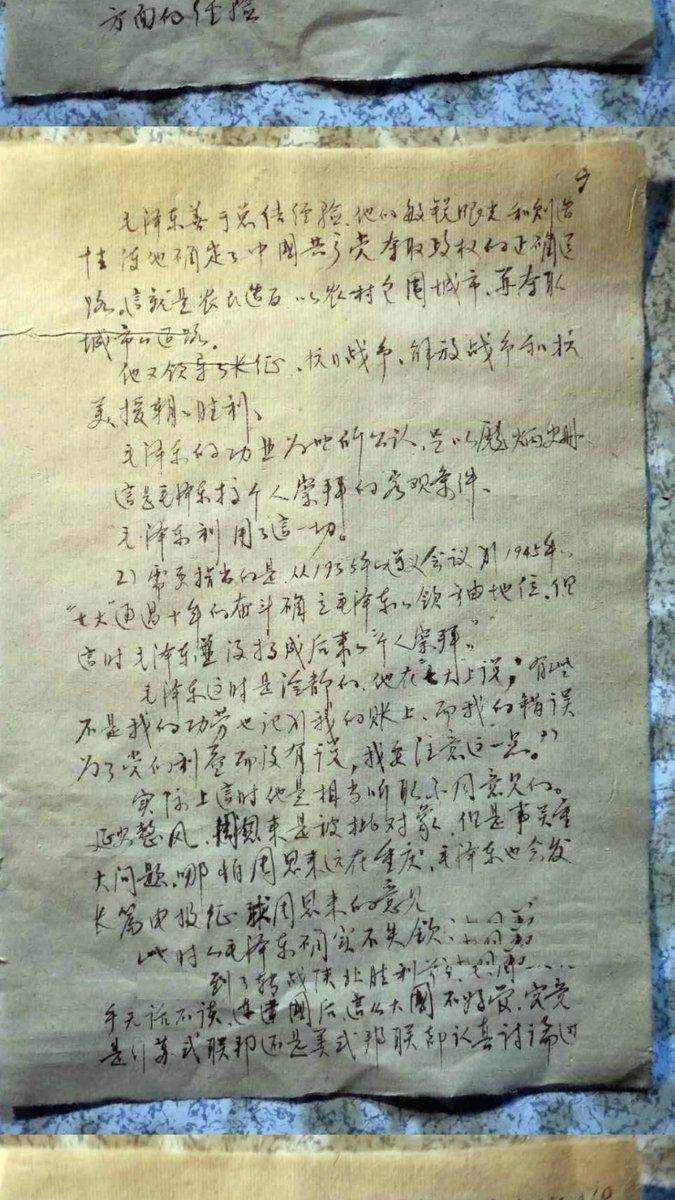 方面的经验
9
毛泽东善于总结经验、他的敏锐眼光和创造
性使他确定了中國共产党夺取政权的正确道
路。這就是农民造反、以农村包围城市、再夺取
城市的道路。
他又领导了长征、抗日战争、解放战争和抗
美援朝的胜利、
毛泽东的功业为世所公认、足以彪炳史册、
這是毛泽东搞个人崇拜的客观条件、
毛泽东利用了這一切。
2）需要指出的是、从1935年的遵义会议到1945年的
“七大”通過十年的奋斗确立毛泽东的领袖地位、但
這时毛泽东並没搞成后来的“个人崇拜”
毛泽东这时是冷静的、他在七大上说；“有些
不是我的功劳也记到我的账上、而我的错误
为了党的利益而没有说，我要注意这一点。”
实际上這时他是相当听取不同意见的。
延安整风、周恩来是被批对象、但是事关重
大问题、哪怕周恩来远在重庆、毛泽东也会发
长篇电报征求周恩来的意见
此时的毛泽东确实不失领
到了转战陕北胜利
乎无话不谈、连建國后這么大國不好管、究竟
是行苏式联邦还是美式邦联都认真讨论过